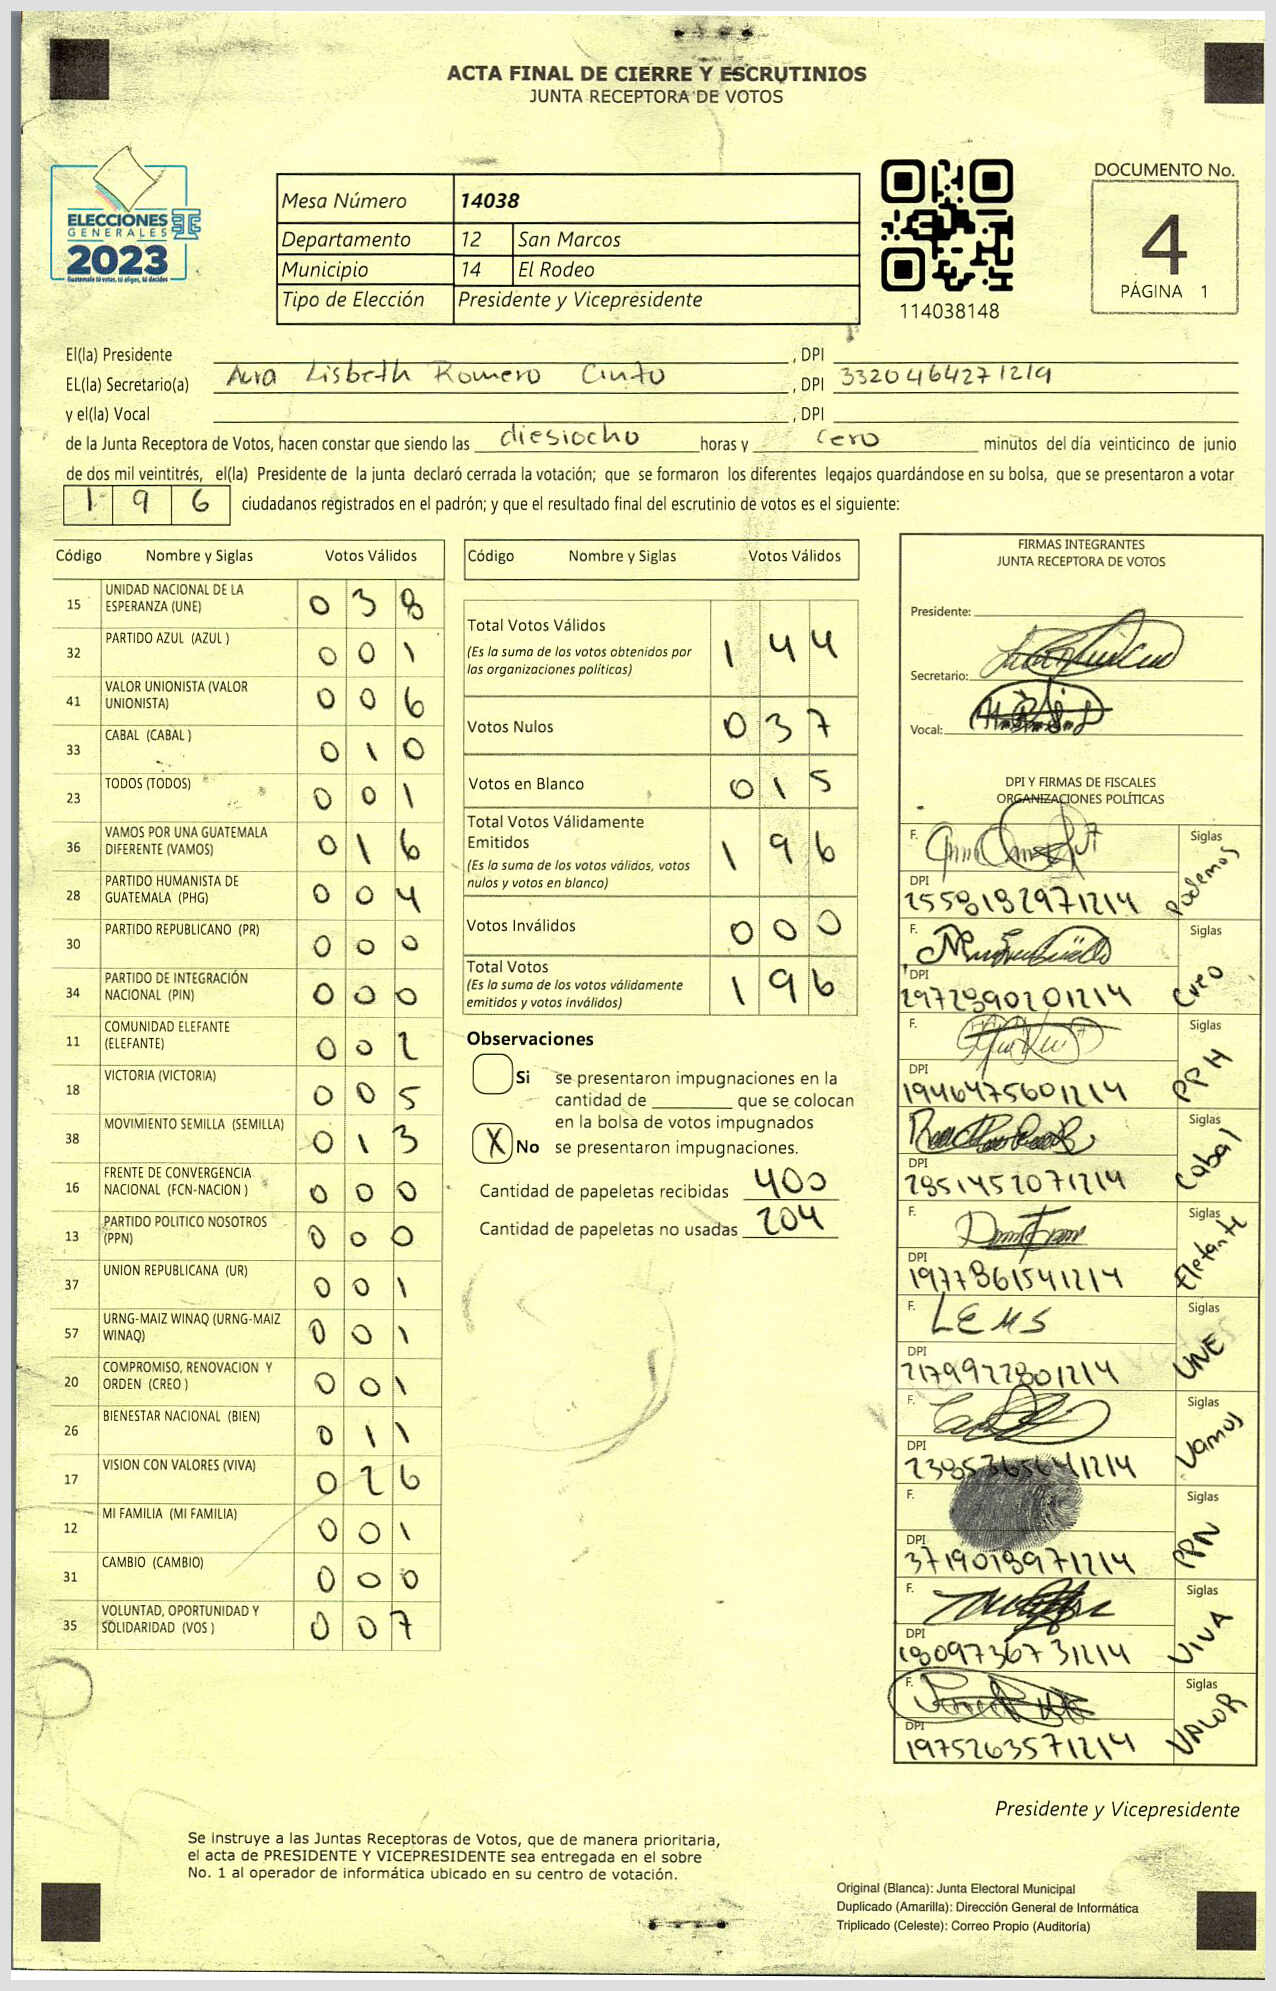 ACTA FINAL DE CIERRE Y ESCRUTINIOS
JUNTA RECEPTORA DE VOTOS
ELECCIONES
GENERALES
2023
Guatemala tú votas, tú eliges, tú decides
Mesa Número 14038
Departamento 12 San Marcos
Municipio 14 El Rodeo
Tipo de Elección Presidente y Vicepresidente
114038148
DOCUMENTO No.
4
PÁGINA 1
El(la) Presidente , DPI
EL(la) Secretario(a) Aura Lisbeth Romero Cinto , DPI 3320464271219
y el(la) Vocal , DPI
de la Junta Receptora de Votos, hacen constar que siendo las diesiocho horas y cero minutos del día veinticinco de junio
de dos mil veintitrés, el(la) Presidente de la junta declaró cerrada la votación; que se formaron los diferentes legajos guardándose en su bolsa, que se presentaron a votar
1 9 6 ciudadanos registrados en el padrón; y que el resultado final del escrutinio de votos es el siguiente:
Código Nombre y Siglas Votos Válidos
15 UNIDAD NACIONAL DE LA ESPERANZA (UNE) 0 3 8
32 PARTIDO AZUL (AZUL ) 0 0 1
41 VALOR UNIONISTA (VALOR UNIONISTA) 0 0 6
33 CABAL (CABAL ) 0 1 0
23 TODOS (TODOS) 0 0 1
36 VAMOS POR UNA GUATEMALA DIFERENTE (VAMOS) 0 1 6
28 PARTIDO HUMANISTA DE GUATEMALA (PHG) 0 0 4
30 PARTIDO REPUBLICANO (PR) 0 0 0
34 PARTIDO DE INTEGRACIÓN NACIONAL (PIN) 0 0 0
11 COMUNIDAD ELEFANTE (ELEFANTE) 0 0 2
18 VICTORIA (VICTORIA) 0 0 5
38 MOVIMIENTO SEMILLA (SEMILLA) 0 1 3
16 FRENTE DE CONVERGENCIA NACIONAL (FCN-NACION ) 0 0 0
13 PARTIDO POLITICO NOSOTROS (PPN) 0 0 0
37 UNION REPUBLICANA (UR) 0 0 1
57 URNG-MAIZ WINAQ (URNG-MAIZ WINAQ) 0 0 1
20 COMPROMISO, RENOVACION Y ORDEN (CREO ) 0 0 1
26 BIENESTAR NACIONAL (BIEN) 0 1 1
17 VISION CON VALORES (VIVA) 0 2 6
12 MI FAMILIA (MI FAMILIA) 0 0 1
31 CAMBIO (CAMBIO) 0 0 0
35 VOLUNTAD, OPORTUNIDAD Y SOLIDARIDAD (VOS ) 0 0 7
Código Nombre y Siglas Votos Válidos
Total Votos Válidos 1 4 4
(Es la suma de los votos obtenidos por
las organizaciones políticas)
Votos Nulos 0 3 7
Votos en Blanco 0 1 5
Total Votos Válidamente
Emitidos 1 9 6
(Es la suma de los votos válidos, votos
nulos y votos en blanco)
Votos Inválidos 0 0 0
Total Votos 1 9 6
(Es la suma de los votos válidamente
emitidos y votos inválidos)
Observaciones
Si se presentaron impugnaciones en la
cantidad de ________ que se colocan
en la bolsa de votos impugnados
X No se presentaron impugnaciones.
Cantidad de papeletas recibidas 400
Cantidad de papeletas no usadas 204
FIRMAS INTEGRANTES
JUNTA RECEPTORA DE VOTOS
Presidente:
Secretario:
Vocal:
DPI Y FIRMAS DE FISCALES
ORGANIZACIONES POLÍTICAS
F. Siglas Podemos
DPI 2558182971214
F. Siglas Creo
DPI 2972890201214
F. Siglas PPH
DPI 1946475601214
F. Siglas Cabal
DPI 2851452071214
F. Siglas Elefante
DPI 1977861541214
F. LEMS Siglas UNE
DPI 2179922801214
F. Siglas Vamos
DPI
F. Siglas PPN
DPI 3719018971214
F. Siglas VIVA
DPI 1809736731214
F. Siglas VALOR
DPI 1975263571214
Presidente y Vicepresidente
Se instruye a las Juntas Receptoras de Votos, que de manera prioritaria,
el acta de PRESIDENTE Y VICEPRESIDENTE sea entregada en el sobre
No. 1 al operador de informática ubicado en su centro de votación.
Original (Blanca): Junta Electoral Municipal
Duplicado (Amarilla): Dirección General de Informática
Triplicado (Celeste): Correo Propio (Auditoría)